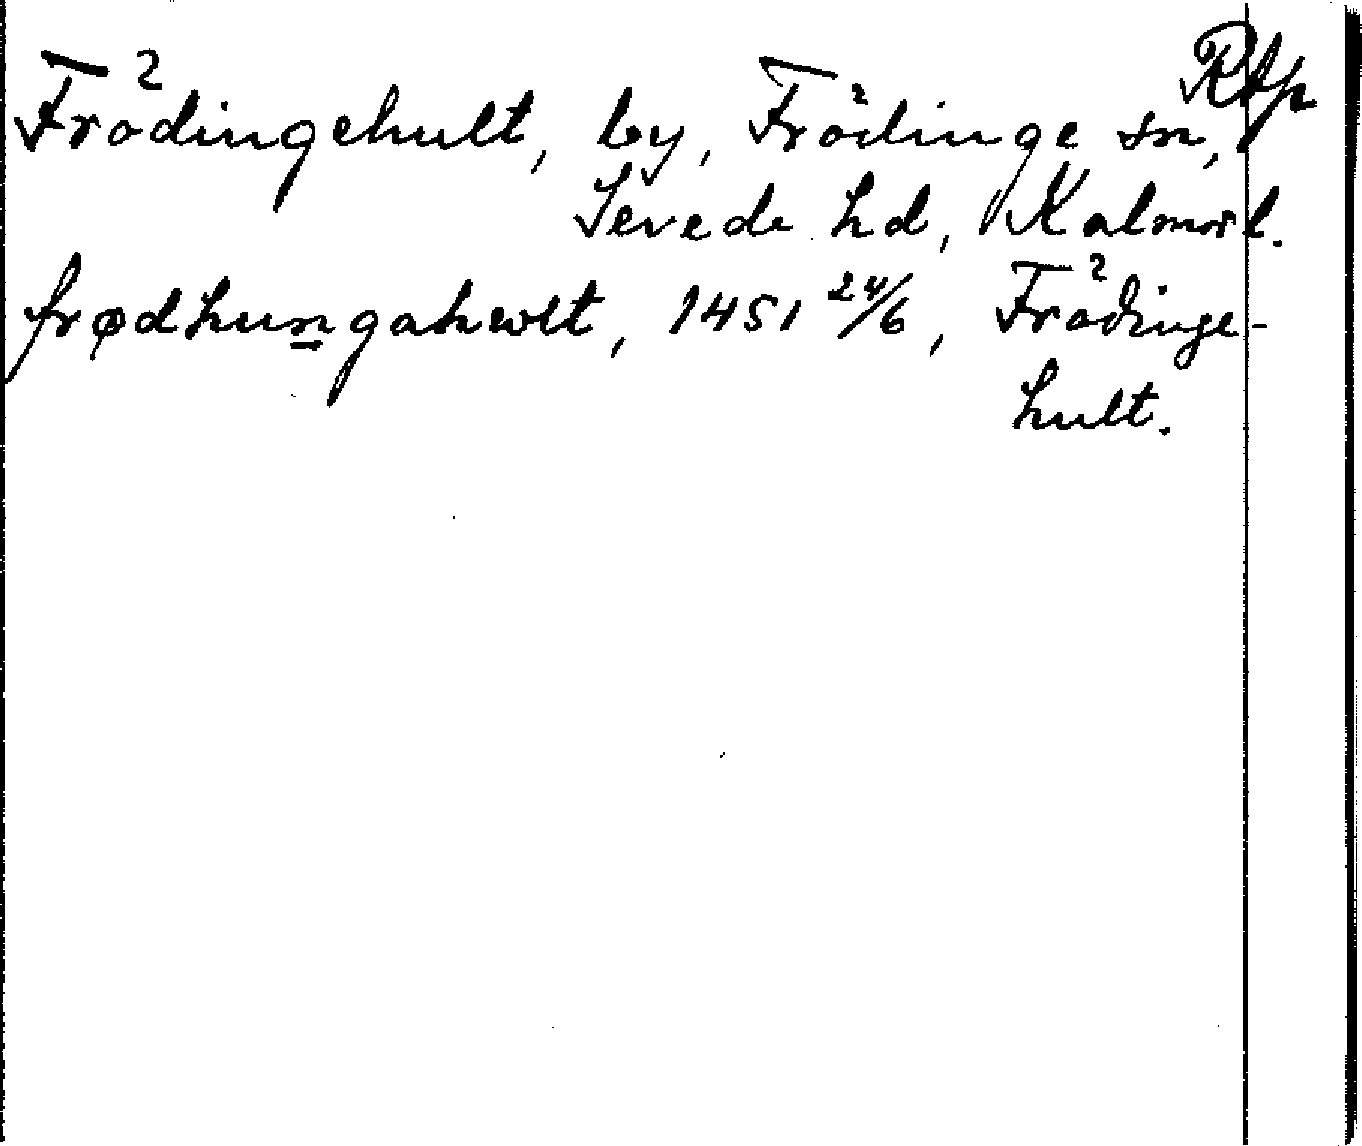 Rtp
Frödingehult, by, Frödinge sn,
Sevede hd, Kalmar l.
frødhungahwlt, 1451 24/6, Frödinge-
hult.